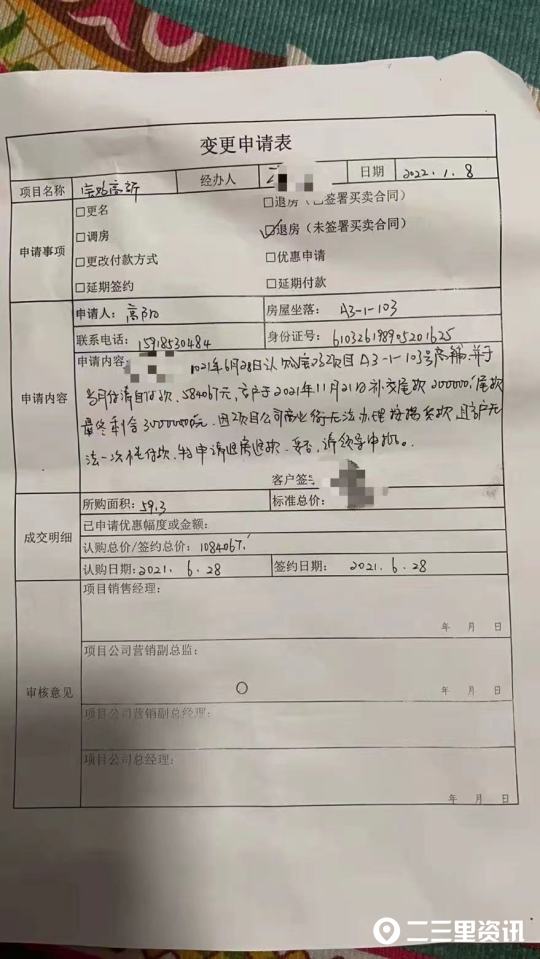 变更申请表
项目名称 宝鸡高新 经办人 日期 2022.1.8
申请事项
□更名 □退房（已签署买卖合同）
□调房 ☑退房（未签署买卖合同）
□更改付款方式 □优惠申请
□延期签约 □延期付款
申请内容
申请人：高阳 房屋坐落：A3-1-103
联系电话：15918530484 身份证号：610326198905201625
申请内容： 2021年6月28日认购 项目A3-1-103号商铺,并于
当月付清首付款,584067元,客户于2021年11月21日补交尾款200000,尾款
最终剩余300000元.因项目公司商业街无法办理按揭贷款,且客户无
法一次性付款.特申请退房退款.妥否,请领导审批。
客户签
成交明细
所购面积：59.3 标准总价：
已申请优惠幅度或金额：
认购总价/签约总价：1084067.
认购日期：2021.6.28 签约日期：2021.6.28
审核意见
项目销售经理：
年 月 日
项目公司营销副总监：
项目公司营销副总经理：
项目公司总经理：
年 月 日
二三里资讯